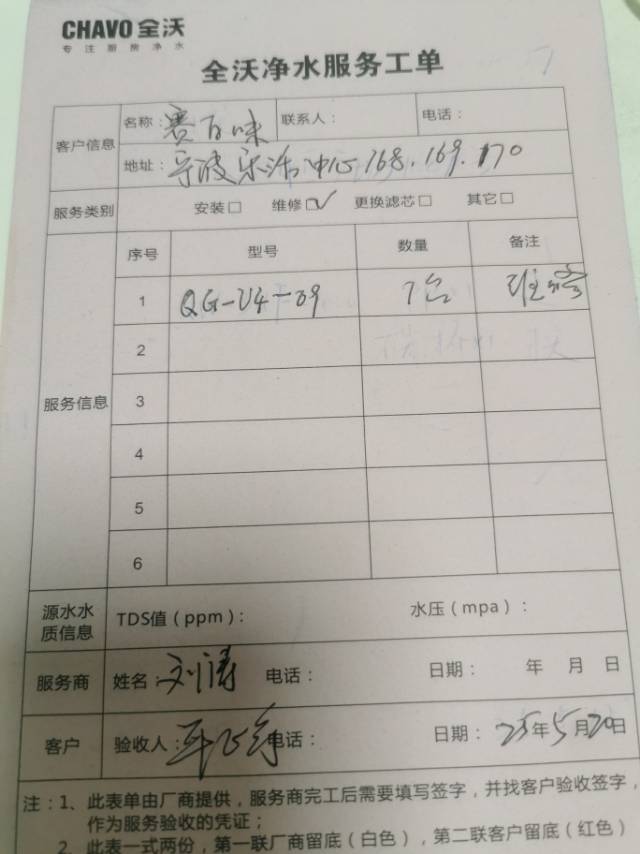 CHAVO 全沃
专注厨房净水
全沃净水服务工单
客户信息 名称：赛百味 联系人： 电话：
地址：宁波乐活中心168.169.170
服务类别 安装□ 维修☑ 更换滤芯□ 其它□
服务信息 序号 型号 数量 备注
1 QG-U4-09 1台
2
3
4
5
6
源水水质信息 TDS值（ppm）： 水压（mpa）：
服务商 姓名：刘涛 电话： 日期： 年 月 日
客户 验收人： 电话： 日期：25年5月20日
注：1、此表单由厂商提供，服务商完工后需要填写签字，并找客户验收签字，
作为服务验收的凭证；
2、此表一式两份，第一联厂商留底（白色），第二联客户留底（红色）